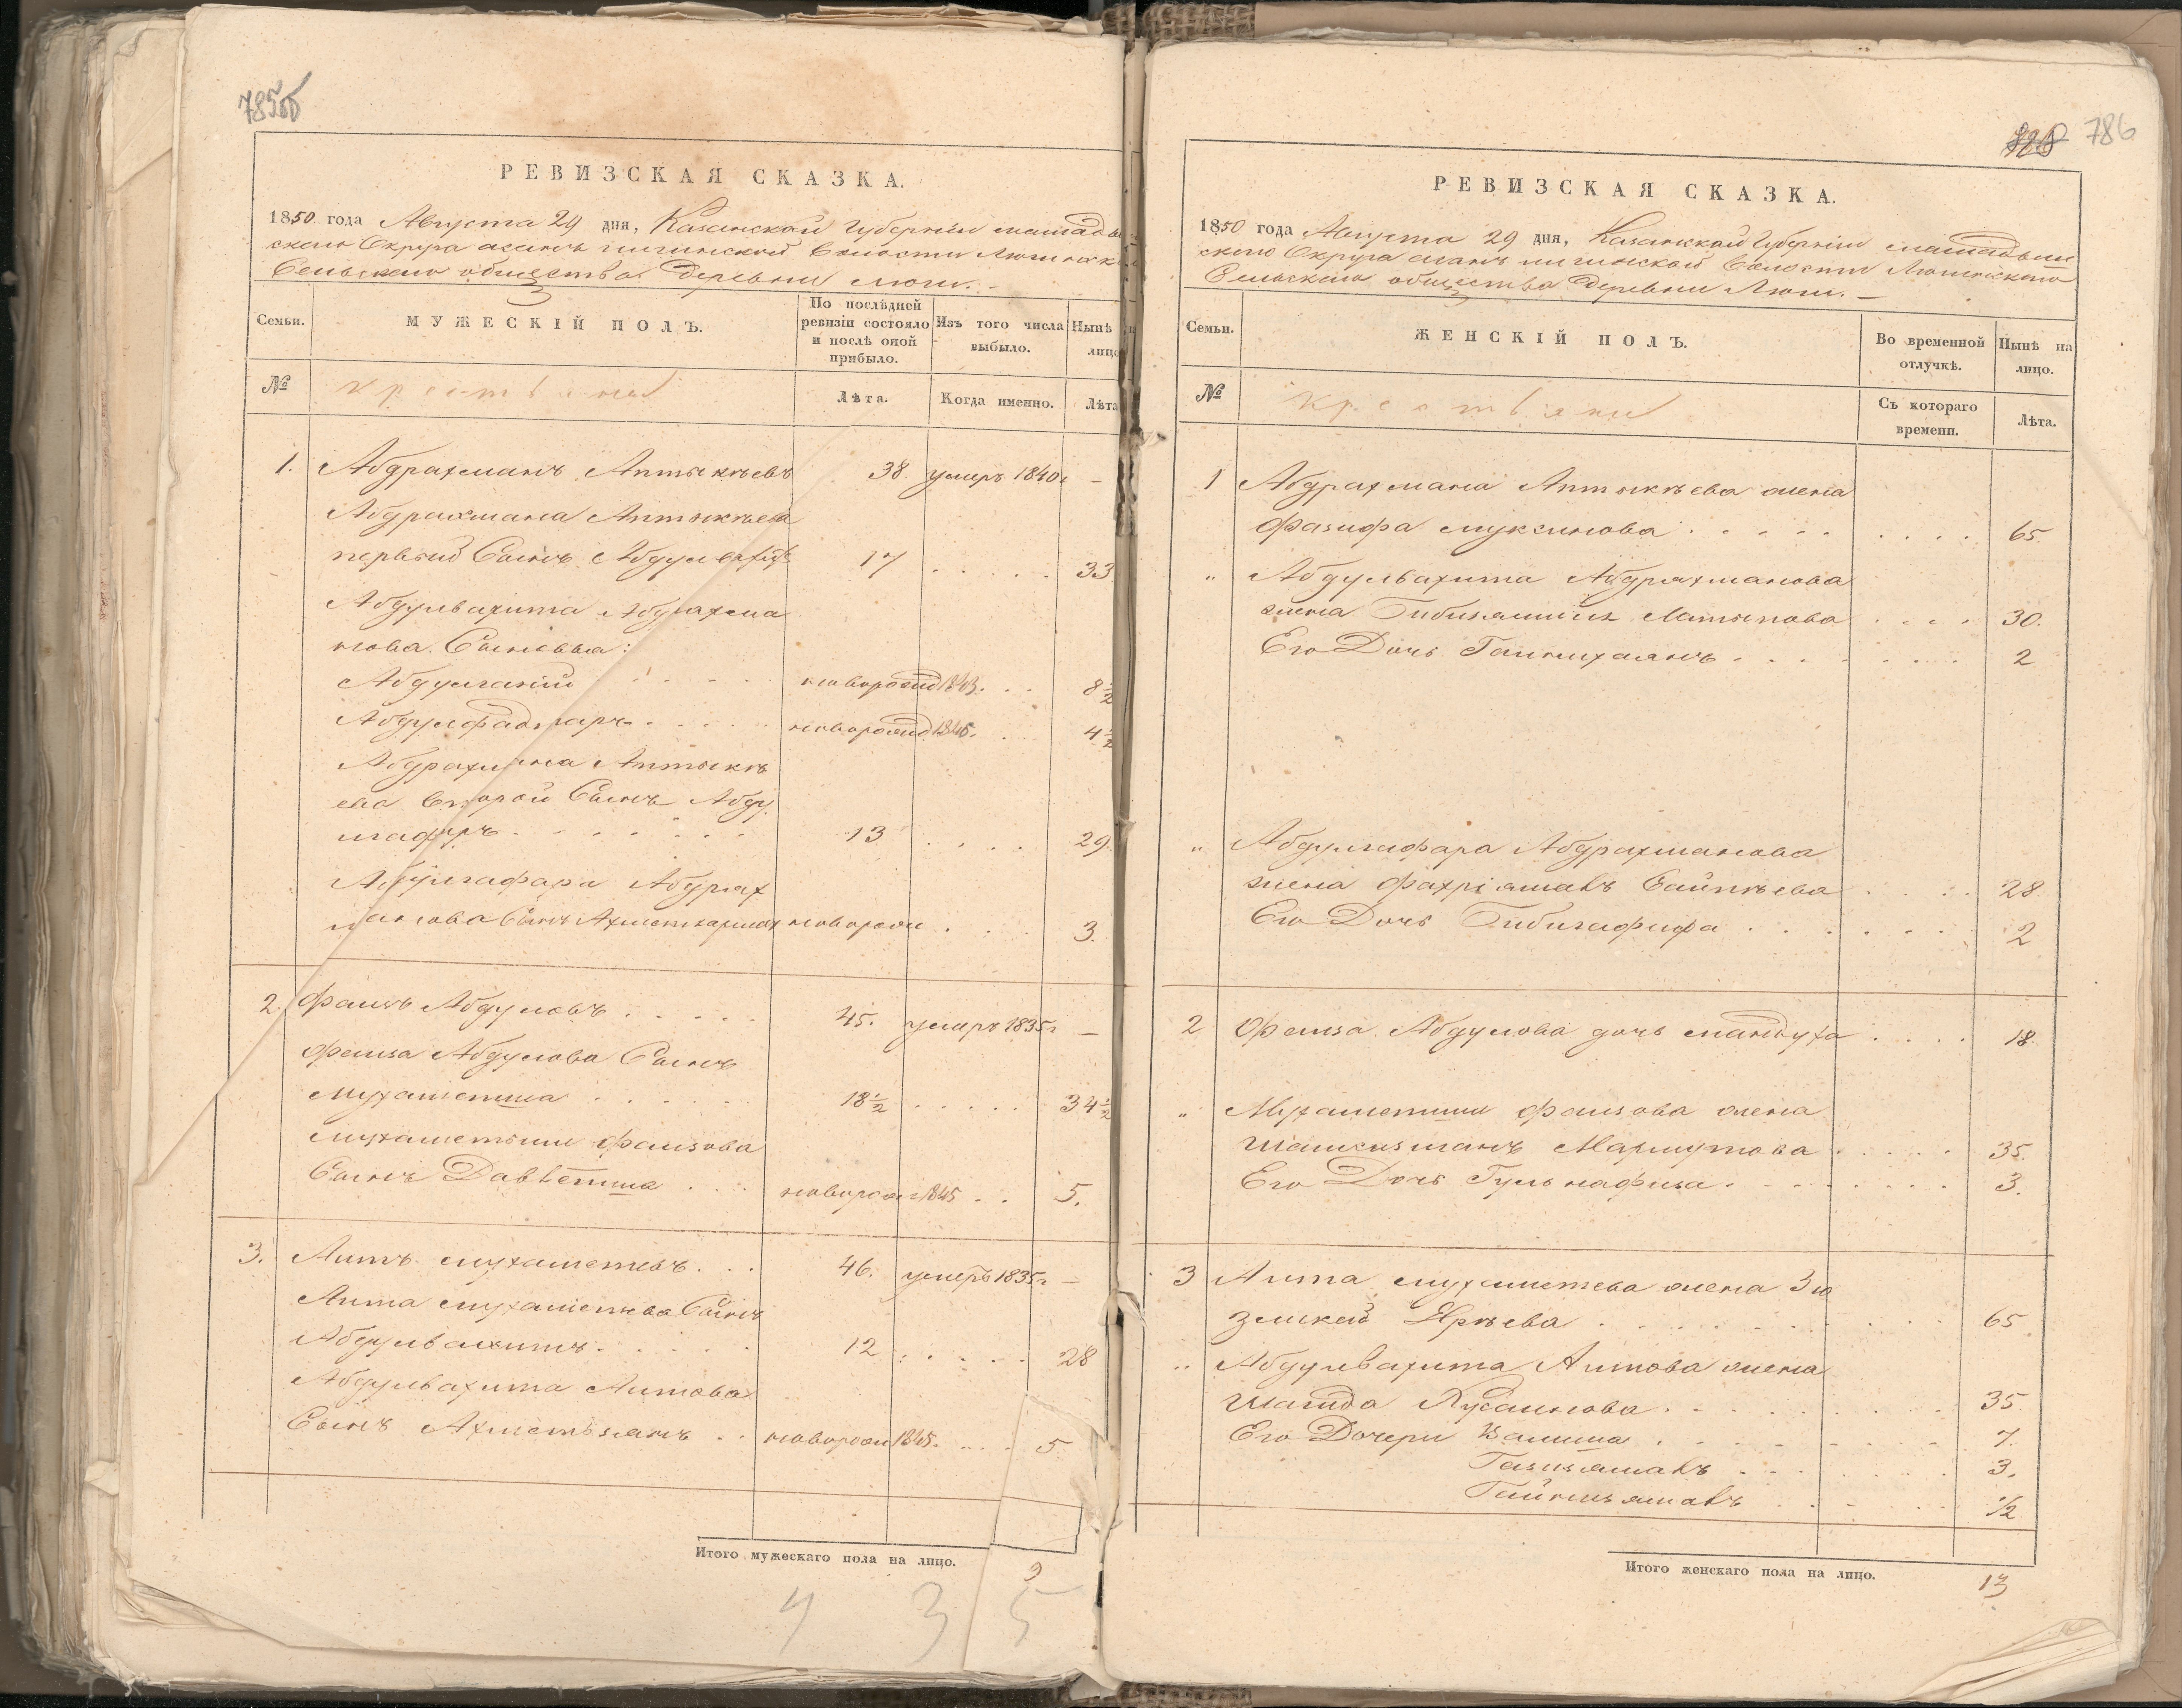 785об
РЕВИЗСКАЯ СКАЗКА.
1850 года Августа 29 дня, Казанской Губернiи мамады
скаго Округа асанъ Волости Люгинск
Сельскаго общества Деревни Люги. –
Семьи.
МУЖЕСКIЙ ПОЛЪ.
По послѣдней ревизiи состояло и послѣ оной прибыло.
Изъ того числа выбыло.
Нынѣ лицо
№
крестьяне
Лѣта.
Когда именно.
Лѣта
1. Абдрахманъ Аптыкѣевъ 38 умеръ 1840г –
Абдрахмана Аптыкѣева
первый Сынъ Абдулвахитъ 17 . . . . . 33
Абдулвахита Абдрахма
нова Сыновья:
Абдулганiй . . . . новорожд 1843. . . 8½
Абдул . . . . новорожд 1846. . . 4½
Абдрахмана Аптыкѣ
ева второй Сынъ Абду
лгафаръ . . . . . . . 13 . . . . 29.
Абдулгафара Абдрах
манова Сынъ новорож . . . 3.
2. Фаизъ Абдуловъ . . . . . 45. умеръ 1835г –
Фаиза Абдулова Сынъ
Мухаметша . . . . . . 18½ . . . . . 34½
Мухаметши Фаизова
Сынъ Давлетша . . . новорож 1845 . . 5.
3. Аитъ мухаметевъ . . . 46. умеръ 1835г –
Аита мухаметева Сынъ
Абдулвахитъ . . . . . 12 . . . . . 28
Абдулвахита Аитова
Сынъ Ахметзянъ . . новорож 1845. . . . . 5
Итого мужескаго пола на лицо.
9
4 3 5
786
РЕВИЗСКАЯ СКАЗКА.
1850 года Августа 29 дня, Казанской Губернiи мамадыш
скаго Округа асанъ Волости Люгинскаго
Сельскаго общества Деревни Люги. –
Семьи.
ЖЕНСКIЙ ПОЛЪ.
Во временной отлучкѣ.
Нынѣ на лицо.
№
крестьяне
Съ котораго времени.
Лѣта.
1 Абдрахмана Аптыкѣева жена
Фазифа муксинова . . . . . . . . . 65.
„ Абдулвахита Абдрахманова
жена Латыпова . . . . 30.
Его Дочь . . . . . . . . 2
„ Абдулгафара Абдрахманова
жена Фахрiямалъ Сайпѣева . . . . 28
Его Дочь Бибигафифа . . . . . . 2
2 Фаиза Абдулова дочь мандуха . . . . 18.
„ Мухаметши Фаизова жена
Шамсизиганъ Мармутова . . . . . 35.
Его Дочь Гульнафиза . . . . . . . . 3.
3 Аита мухаметева жена Зю
Ярѣева . . . . . . . . . 65.
„ Абдулвахита Аитова жена
Шагида Хусаинова . . . . . . . . 35.
Его Дочери . . . . . . . . 7.
Газизямалъ . . . . . . 3.
. . . . . ½
Итого женскаго пола на лицо.
13